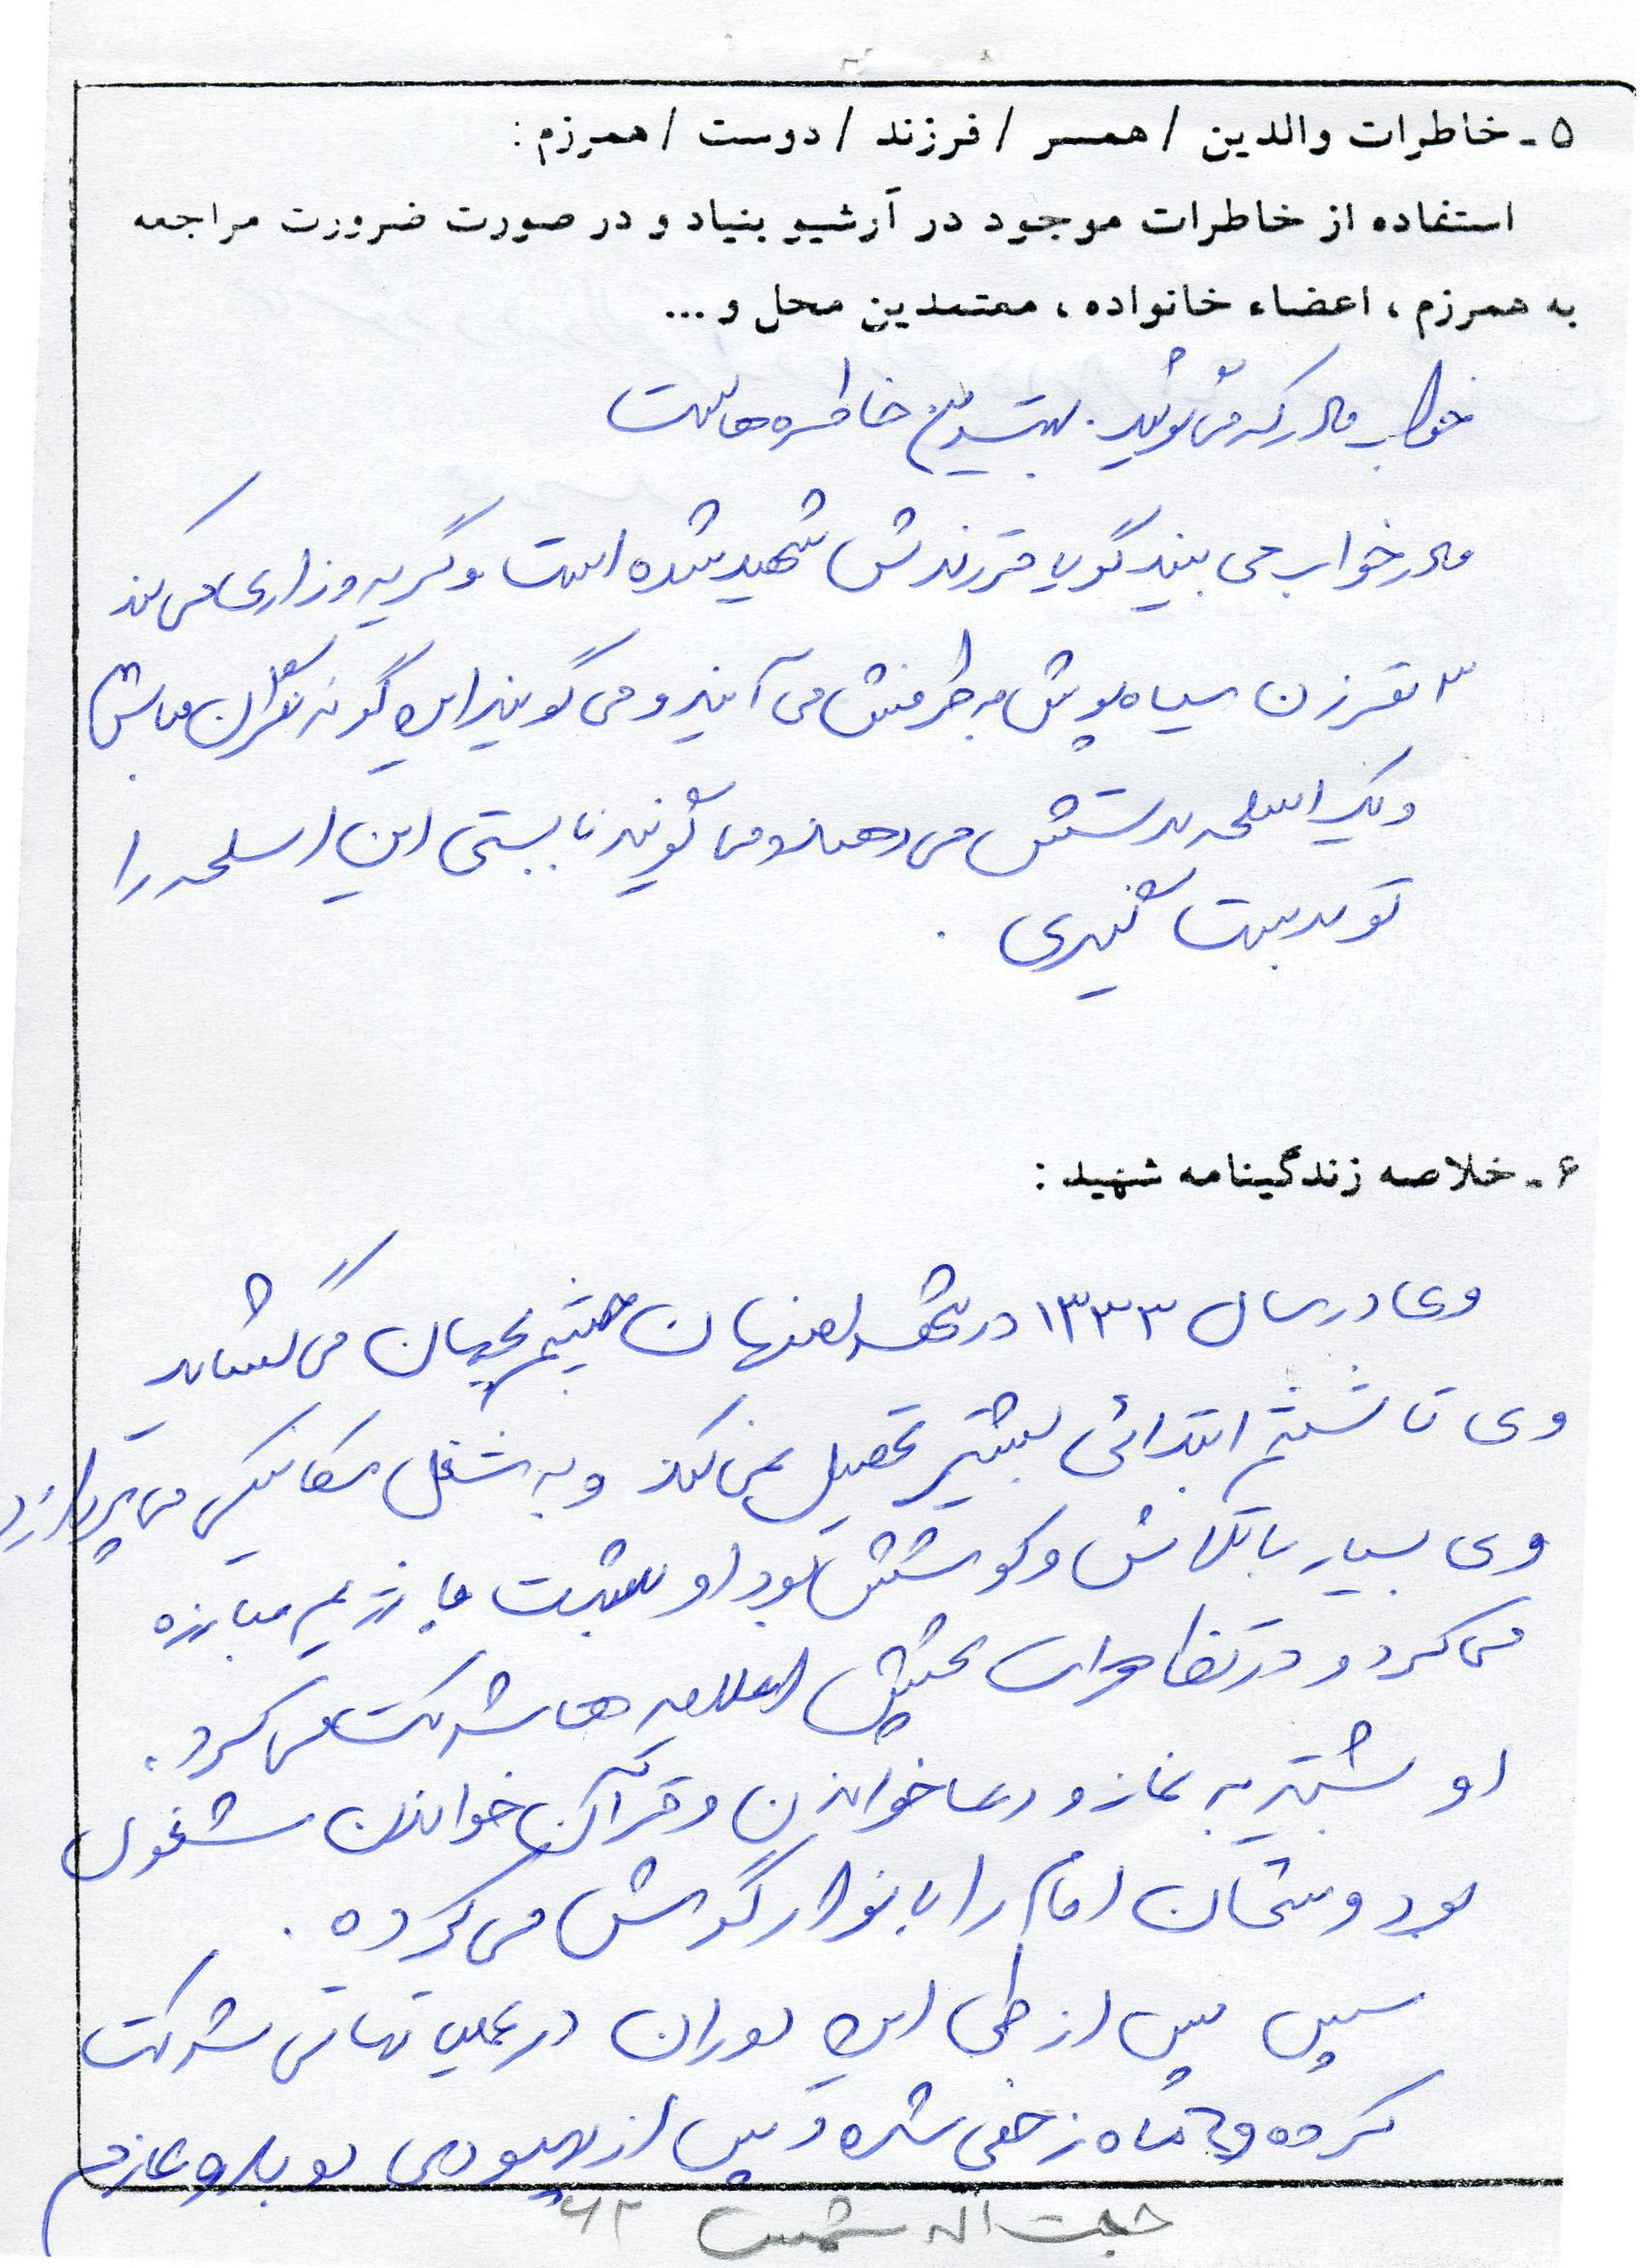 ۵ - خاطرات والدین / همسر / فرزند / دوست / همرزم :
استفاده از خاطرات موجود در آرشیو بنیاد و در صورت ضرورت مراجعه
به همرزم ، اعضاء خانواده ، معتمدین محل و ...
خواب مادر که می‌گوید. بهترین خاطره هاست
مادر خواب می بیند گویا فرزندش شهید شده است و گریه و زاری می کند
۳ نفر زن سیاه پوش به طرفش می آیند و می گویند این گونه نگران مباش
و یک اسلحه بدستش می دهند و می گویند بایستی این اسلحه را
تو بدست گیری .
۶ - خلاصه زندگینامه شهید :
وی در سال ۱۳۳۳ در شهر اصفهان چشم بجهان می گشاید
وی تا ششم ابتدائی بیشتر تحصیل نمی کند و به شغل مکانیکی می پردازد
وی بسیار با تلاش و کوشش بود او با رژیم مبارزه
می کرد و در تظاهرات پخش اعلامیه ها شرکت می کرد .
او بیشتر به نماز و دعا خواندن و قرآن خواندن مشغول
بود و سخنان امام را با نوار گوش می کرده .
سپس پس از طی این دوران در عملیاتهائی شرکت
کرده و ماه زخمی شده و پس از بهبودی دوباره عازم
حجت اله شمس ۶۲